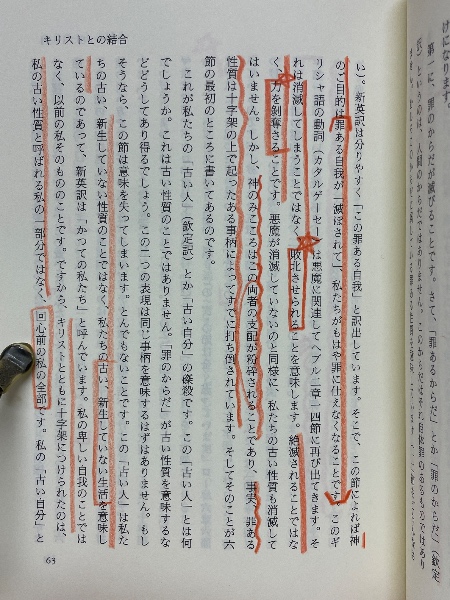 キリストとの結合
い)。新英訳は分りやすく「この罪ある自我」と訳出しています。そこで、この節によれば神
のご目的は罪ある自我が「滅ぼされて」、私たちがもはや罪に仕えなくなることです。このギ
リシャ語の動詞(カタルゲーセー)は悪魔に関連してヘブル二章一四節に再び出てきます。そ
れは消滅してしまうことではなく、敗北させられることを意味します。絶滅されることではな
く、力を剝奪さることです。悪魔が消滅していないのと同様に、私たちの古い性質も消滅して
はいません。しかし、神のみこころはこの両者の支配が粉砕されることであり、事実、罪ある
性質は十字架の上で起ったある事柄によってすでに打ち倒されています。そしてそのことが六
節の最初のところに書いてあるのです。
これが私たちの「古い人」(欽定訳)とか「古い自分」の磔殺です。この「古い人」とは何
でしょうか。これは古い性質のことではありません。「罪のからだ」が古い性質を意味するな
どどうしてあり得るでしょう。この二つの表現は同じ事柄を意味するはずはありません。もし
そうなら、この節は意味を失ってしまいます。とんでもないことです。この「古い人」は私た
ちの古い、新生していない性質のことではなく、私たちの古い、新生していない生活を意味し
ているのであって、新英訳は「かつての私たち」と呼んでいます。私の卑しい自我のことでは
なく、以前の私そのもののことです。ですから、キリストとともに十字架につけられたのは、
私の古い性質と呼ばれる私の一部分ではなく、回心前の私の全部です。私の「古い自分」と
63
けになります。
第一に、罪のからだが滅びることです。さて、「罪あるからだ」とか「罪のからだ」(欽定